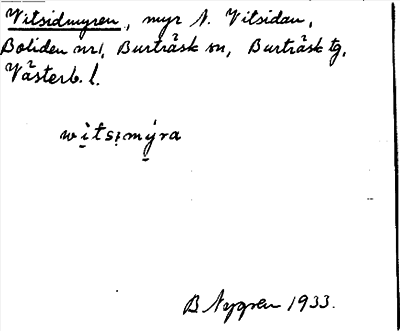 Vitsidmyren, myr N. Vitsidan,
Boliden nr1, Burträsk sn, Burträsk tg,
Västerb. l.
wi̠tsı̣mý̠ra
B Nygren 1933.